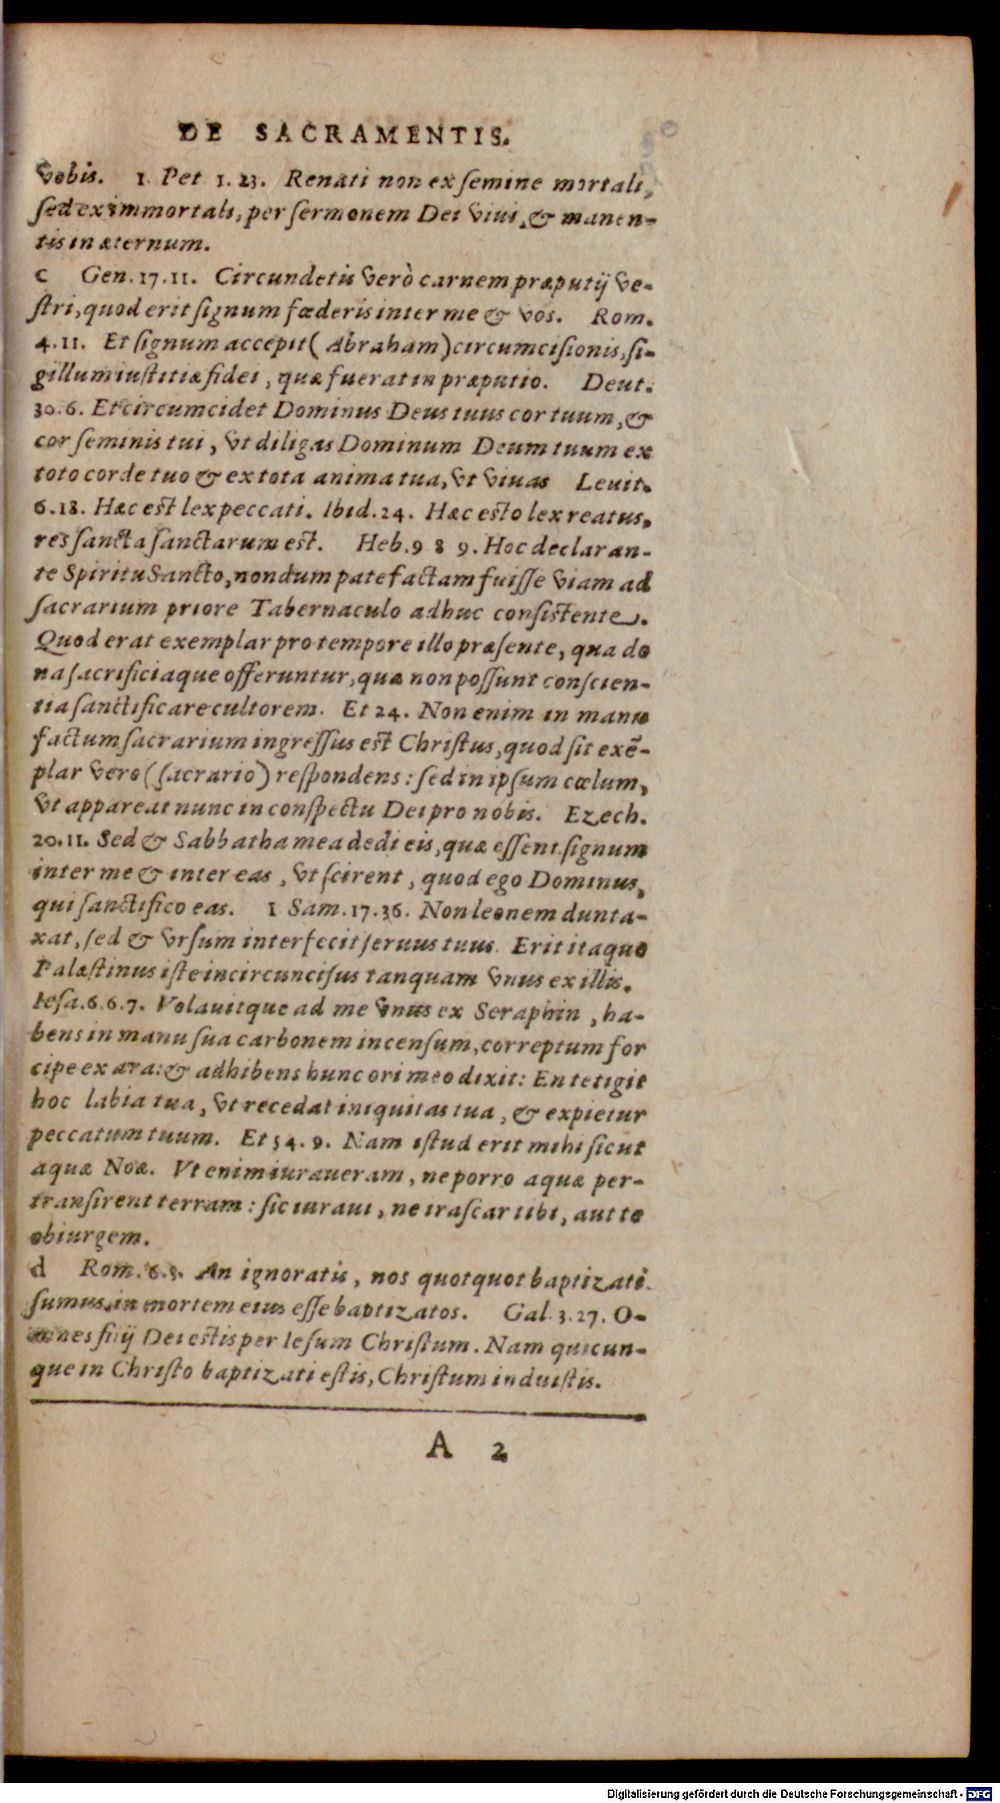 DE SACRAMENTIS.
vobis. 1. Pet 1. 23. Renati non ex semine mortali,
sed ex immortali, per sermonem Dei vivi, & manen-
tis in æternum.
c Gen. 17. 11. Circundetis verò carnem præputij ve-
stri, quod erit signum fœderis inter me & vos. Rom.
4. 11. Et signum accepit (Abraham) circumcisionis, si-
gillum iustitiæ fidei, quæ fuerat in præputio. Deut.
30. 6. Et circumcidet Dominus Deus tuus cor tuum, &
cor seminis tui, vt diligas Dominum Deum tuum ex
toto corde tuo & ex tota anima tua, vt vivas Levit.
6. 18. Hæc est lex peccati. Ibid. 24. Hæc esto lex reatus,
res sancta sanctarum est. Heb. 9 8 9. Hoc declaran-
te Spiritu Sancto, nondum patefactam fuisse viam ad
sacrarium priore Tabernaculo adhuc consistente.
Quod erat exemplar pro tempore illo præsente, qua do
na sacrificiaque offeruntur, quæ non possunt conscien-
tia sanctificare cultorem. Et 24. Non enim in manu
factum sacrarium ingressus est Christus, quod sit exē-
plar vero (sacrario) respondens: sed in ipsum cœlum,
vt appareat nunc in conspectu Dei pro nobis. Ezech.
20. 11. Sed & Sabbatha mea dedi eis, quæ essent signum
inter me & inter eas, vt scirent, quod ego Dominus,
qui sanctifico eas. 1 Sam. 17. 36. Non leonem dunta-
xat, sed & vrsum interfecit servus tuus. Erit itaque
Palæstinus iste incircuncisus tanquam vnus ex illis.
Iesa. 6. 6. 7. Volavitque ad me vnus ex Seraphin, ha-
bens in manu sua carbonem incensum, correptum for
cipe ex ara: & adhibens hunc ori meo dixit: En tetigit
hoc labia tua, vt recedat iniquitas tua, & expietur
peccatum tuum. Et 54. 9. Nam istud erit mihi sicut
aquæ Noæ. Vt enim iuraveram, ne porro aquæ per-
transirent terram: sic iuravi, ne irascar tibi, aut te
obiurgem.
d Rom. 6. 3. An ignoratis, nos quotquot baptizati
sumus, in mortem eius esse baptizatos. Gal. 3. 27. O-
mnes filij Dei estis per Iesum Christum. Nam quicun-
que in Christo baptizati estis, Christum induistis.
A 2
Digitalisierung gefördert durch die Deutsche Forschungsgemeinschaft - DFG